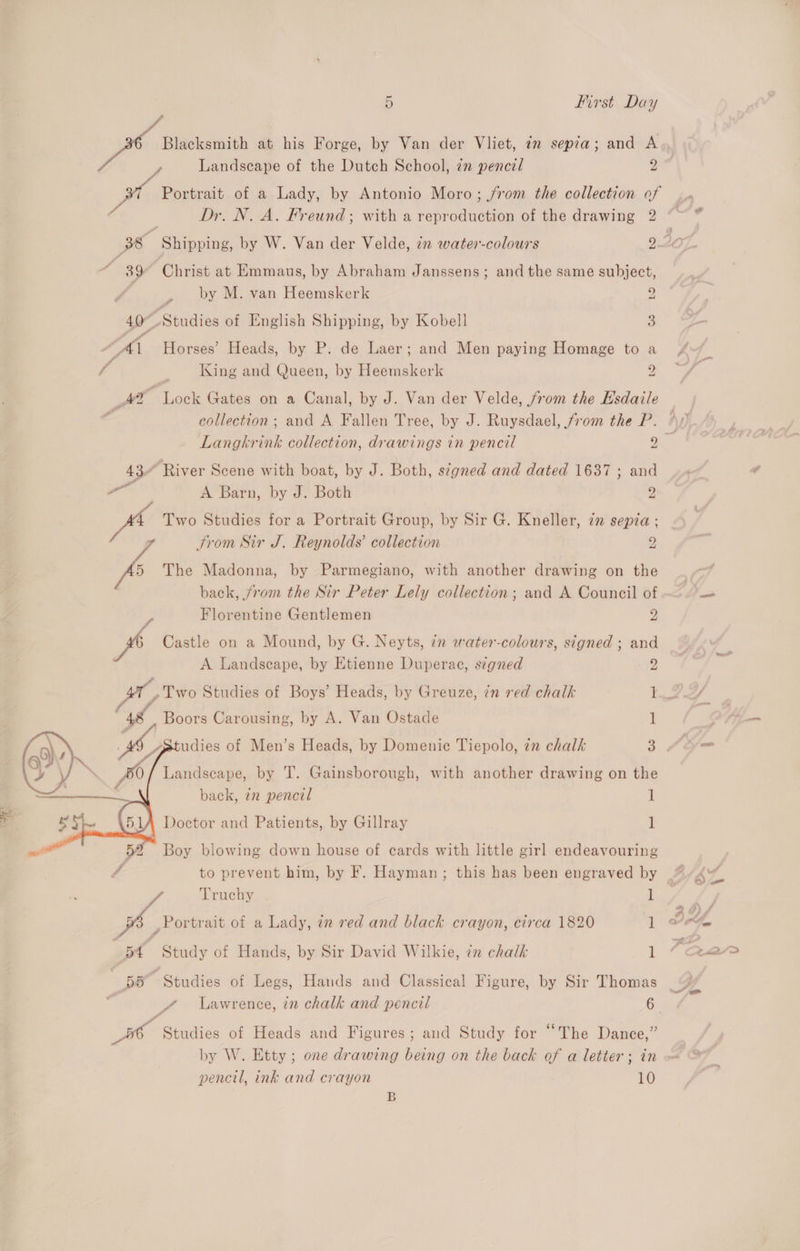 5 First Day
36 Blacksmith at his Forge, by Van der Vliet, in sepia; and A
Landscape of the Dutch School, in pencil 2
37 Portrait of a Lady, by Antonio Moro; from the collection of
Dr. N. A. Freund; with a reproduction of the drawing 2
38 Shipping, by W. Van der Velde, in water-colours 2
39 Christ at Emmaus, by Abraham Janssens; and the same subject,
by M. van Heemskerk 2
40 Studies of English Shipping, by Kobell 3
41 Horses' Heads, by P. de Laer; and Men paying Homage to a
King and Queen, by Heemskerk 2
42 Lock Gates on a Canal, by J. Van der Velde, from the Esdaile
collection; and A Fallen Tree, by J. Ruysdael, from the P.
Langkrink collection, drawings in pencil 2
43 River Scene with boat, by J. Both, signed and dated 1637; and
A Barn, by J. Both 2
44 Two Studies for a Portrait Group, by Sir G. Kneller, in sepia;
from Sir J. Reynolds' collection 2
45 The Madonna, by Parmegiano, with another drawing on the
back, from the Sir Peter Lely collection; and A Council of
Florentine Gentlemen 2
46 Castle on a Mound, by G. Neyts, in water-colours, signed; and
A Landscape, by Etienne Duperac, signed 2
47 Two Studies of Boys' Heads, by Greuze, in red chalk 1
48 Boors Carousing, by A. Van Ostade 1
49 Studies of Men's Heads, by Domenic Tiepolo, in chalk 3
50 Landscape, by T. Gainsborough, with another drawing on the
back, in pencil 1
51 Doctor and Patients, by Gillray 1
52 Boy blowing down house of cards with little girl endeavouring
to prevent him, by F. Hayman; this has been engraved by
Truchy 1
53 Portrait of a Lady, in red and black crayon, circa 1820 1
54 Study of Hands, by Sir David Wilkie, in chalk 1
55 Studies of Legs, Hands and Classical Figure, by Sir Thomas
Lawrence, in chalk and pencil 6
56 Studies of Heads and Figures; and Study for "The Dance,"
by W. Etty; one drawing being on the back of a letter; in
pencil, ink and crayon 10
B